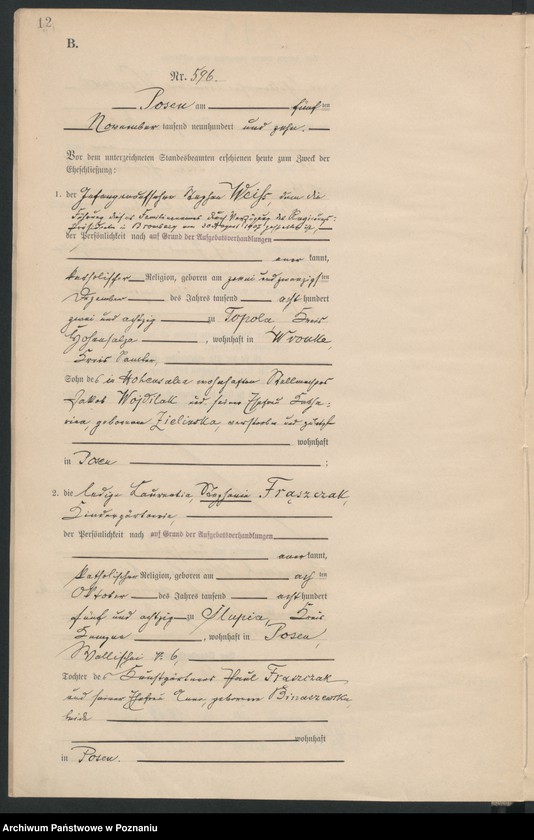 12
B.
Nr. 596.
Posen am fünften
November tausend neunhundert und zehn.
Vor dem unterzeichneten Standesbeamten erschienen heute zum Zweck der
Eheschließung:
1. der Stephan Weiß, dem die
Führung dieses Familiennamens durch Verfügung des Regierungs-
präsidenten in Bromberg vom 30 August 1907 gestattet ist,
der Persönlichkeit nach auf Grund der Aufgebotsverhandlungen
aner kannt,
katholischer Religion, geboren am zwei und zwanzigsten
Dezember des Jahres tausend acht hundert
zwei und achtzig zu Topola Kreis
Hohensalza, wohnhaft in Wronke,
Kreis Samter,
Sohn des in Hohensalza wohnhaften Stellmachers
Jakob Wojdilak und seiner Ehefrau Katha-
rina, geborenen Zielinska, verstorben und zuletzt
wohnhaft
in Posen ;
2. die ledige Laurentia, Stephanie Frąszczak,
Kindergärtnerin,
der Persönlichkeit nach auf Grund der Aufgebotsverhandlungen
aner kannt,
katholischer Religion, geboren am achten
Oktober des Jahres tausend acht hundert
fünf und achtzig zu Slupia, Kreis
Kempen, wohnhaft in Posen,
Wallischei 6,
Tochter des Kunstgärtners Paul Frąszczak
und seiner Ehefrau geborenen Binaszewska,
beide
wohnhaft
in Posen.
Archiwum Państwowe w Poznaniu